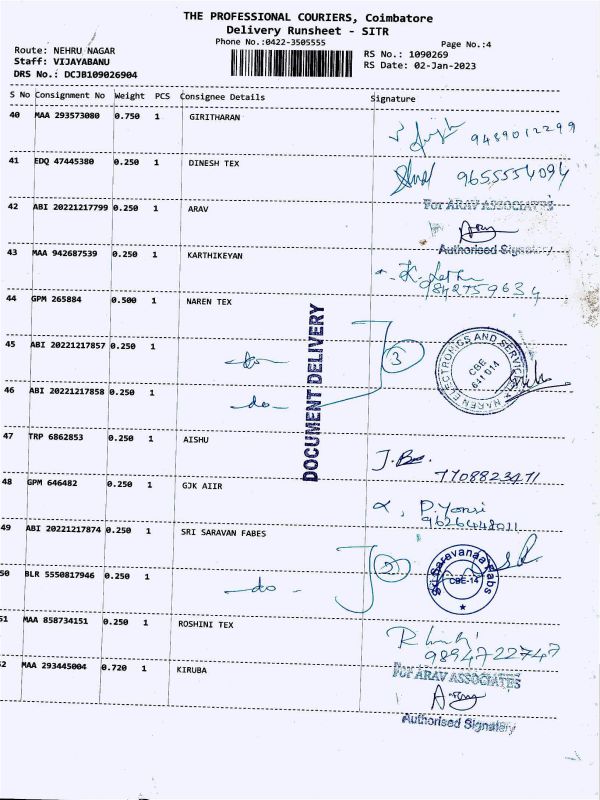 THE PROFESSIONAL COURIERS, Coimbatore
Delivery Runsheet - SITR
Phone No.:0422-3505555
Page No.:4
Route: NEHRU NAGAR
Staff: VIJAYABANU
DRS No.: DCJB109026904
RS No.: 1090269
RS Date: 02-Jan-2023
S No Consignment No Weight PCS Consignee Details Signature
40 MAA 293573080 0.750 1 GIRITHARAN
9489012299
41 EDQ 47445380 0.250 1 DINESH TEX
9655554094
42 ABI 20221217799 0.250 1 ARAV
For ARAV ASSOCIATES
Authorised Signatory
43 MAA 942687539 0.250 1 KARTHIKEYAN
9842759634
44 GPM 265884 0.500 1 NAREN TEX
DOCUMENT DELIVERY
45 ABI 20221217857 0.250 1 -do-
3
NAREN ELECTRONICS AND SERVICE
CBE
641 014
46 ABI 20221217858 0.250 1 -do-
47 TRP 6862853 0.250 1 AISHU
7708823471
48 GPM 646482 0.250 1 GJK AIIR
9626448011
49 ABI 20221217874 0.250 1 SRI SARAVAN FABES
2
Sri Saravanaa Fabs
CBE-14
50 BLR 5550817946 0.250 1 -do-
51 MAA 858734151 0.250 1 ROSHINI TEX
9894722747
52 MAA 293445004 0.720 1 KIRUBA
For ARAV ASSOCIATES
Authorised Signatory